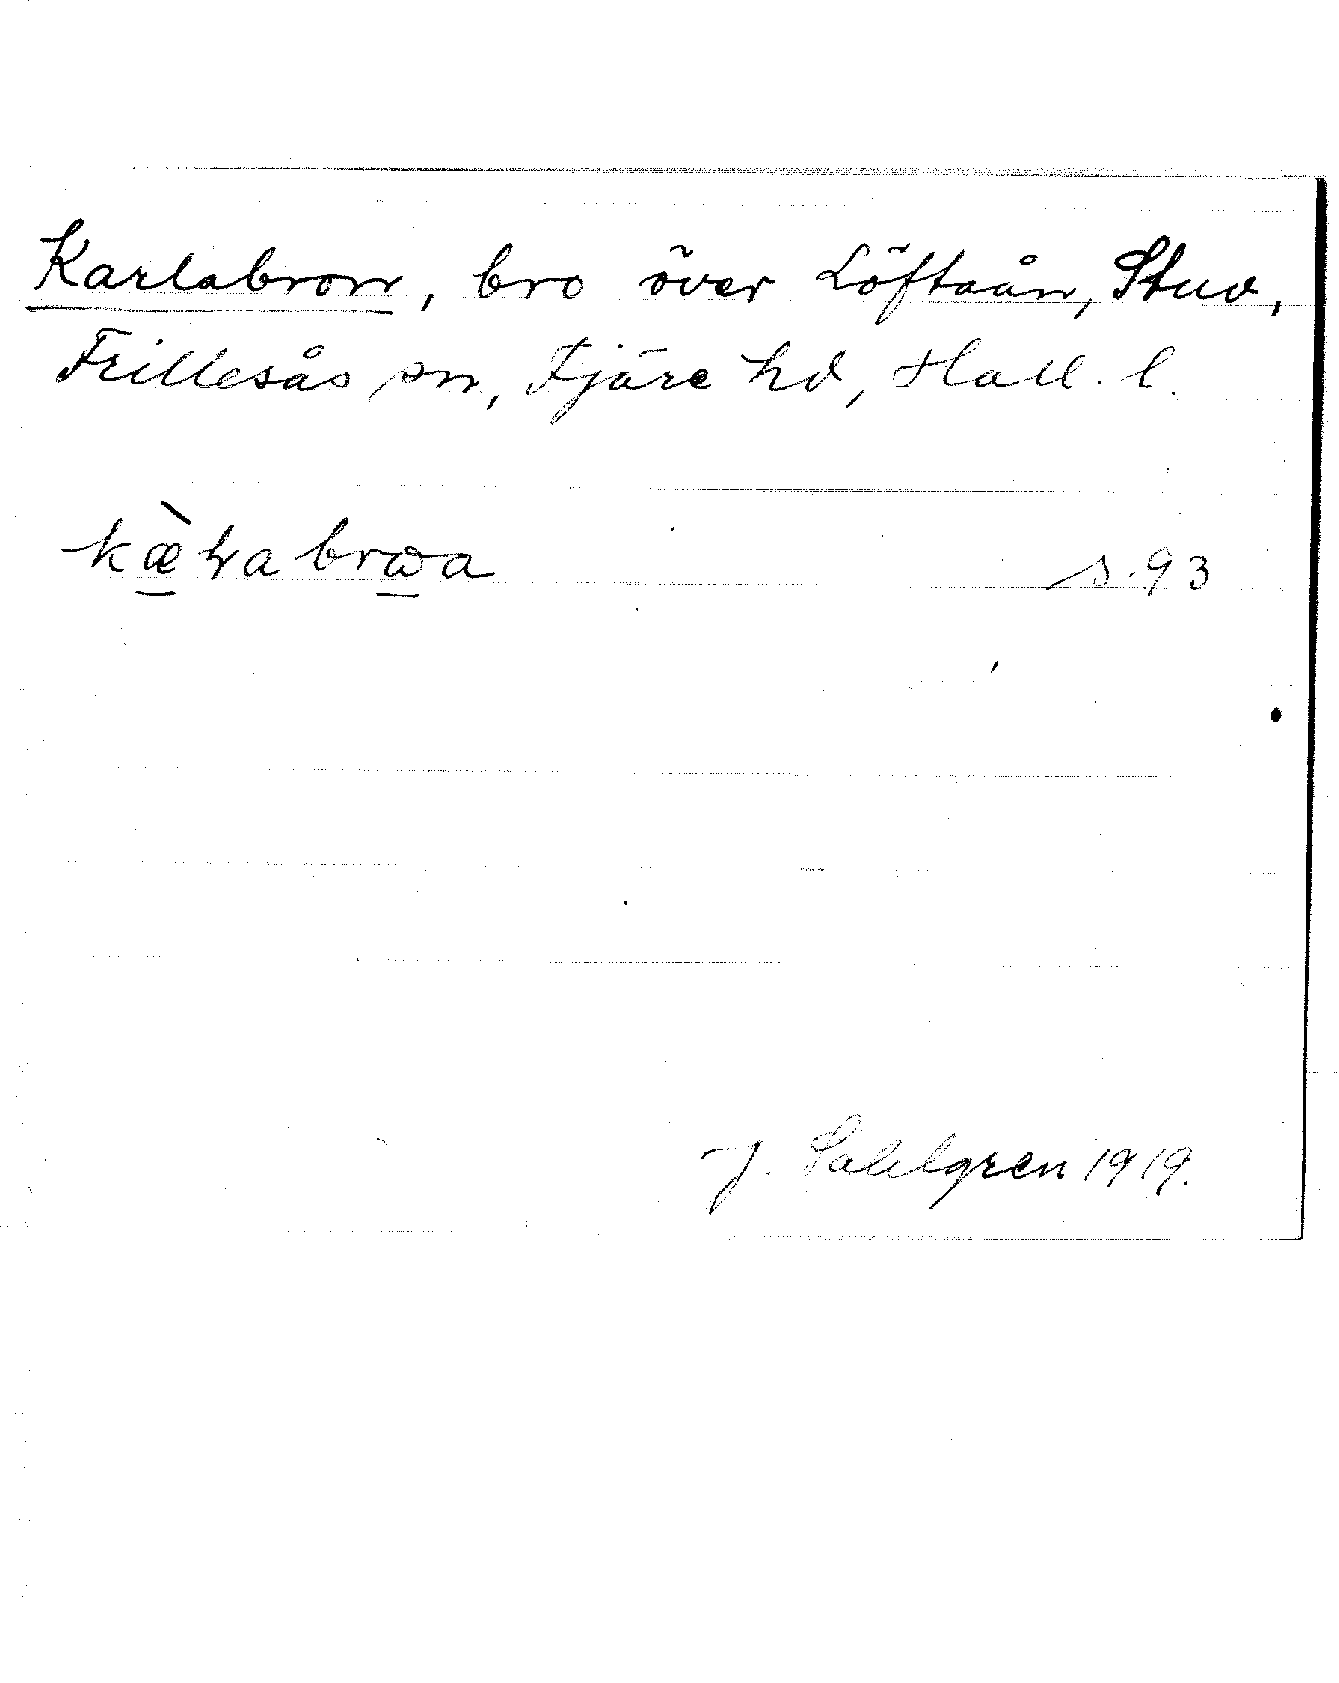 Karlabron, bro över Löftaån, Stud,
Frillesås sn, Fjäre hd, Hall. l.
s. 93
J. Sahlgren 1919.